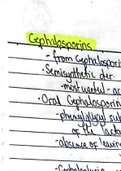 Cephalosporins
- from Cephalospori
- Semisynthetic der
- most useful - ac
• Oral Cephalosporin
- phenylglycyl sub
of the lacta
- absence of leavin